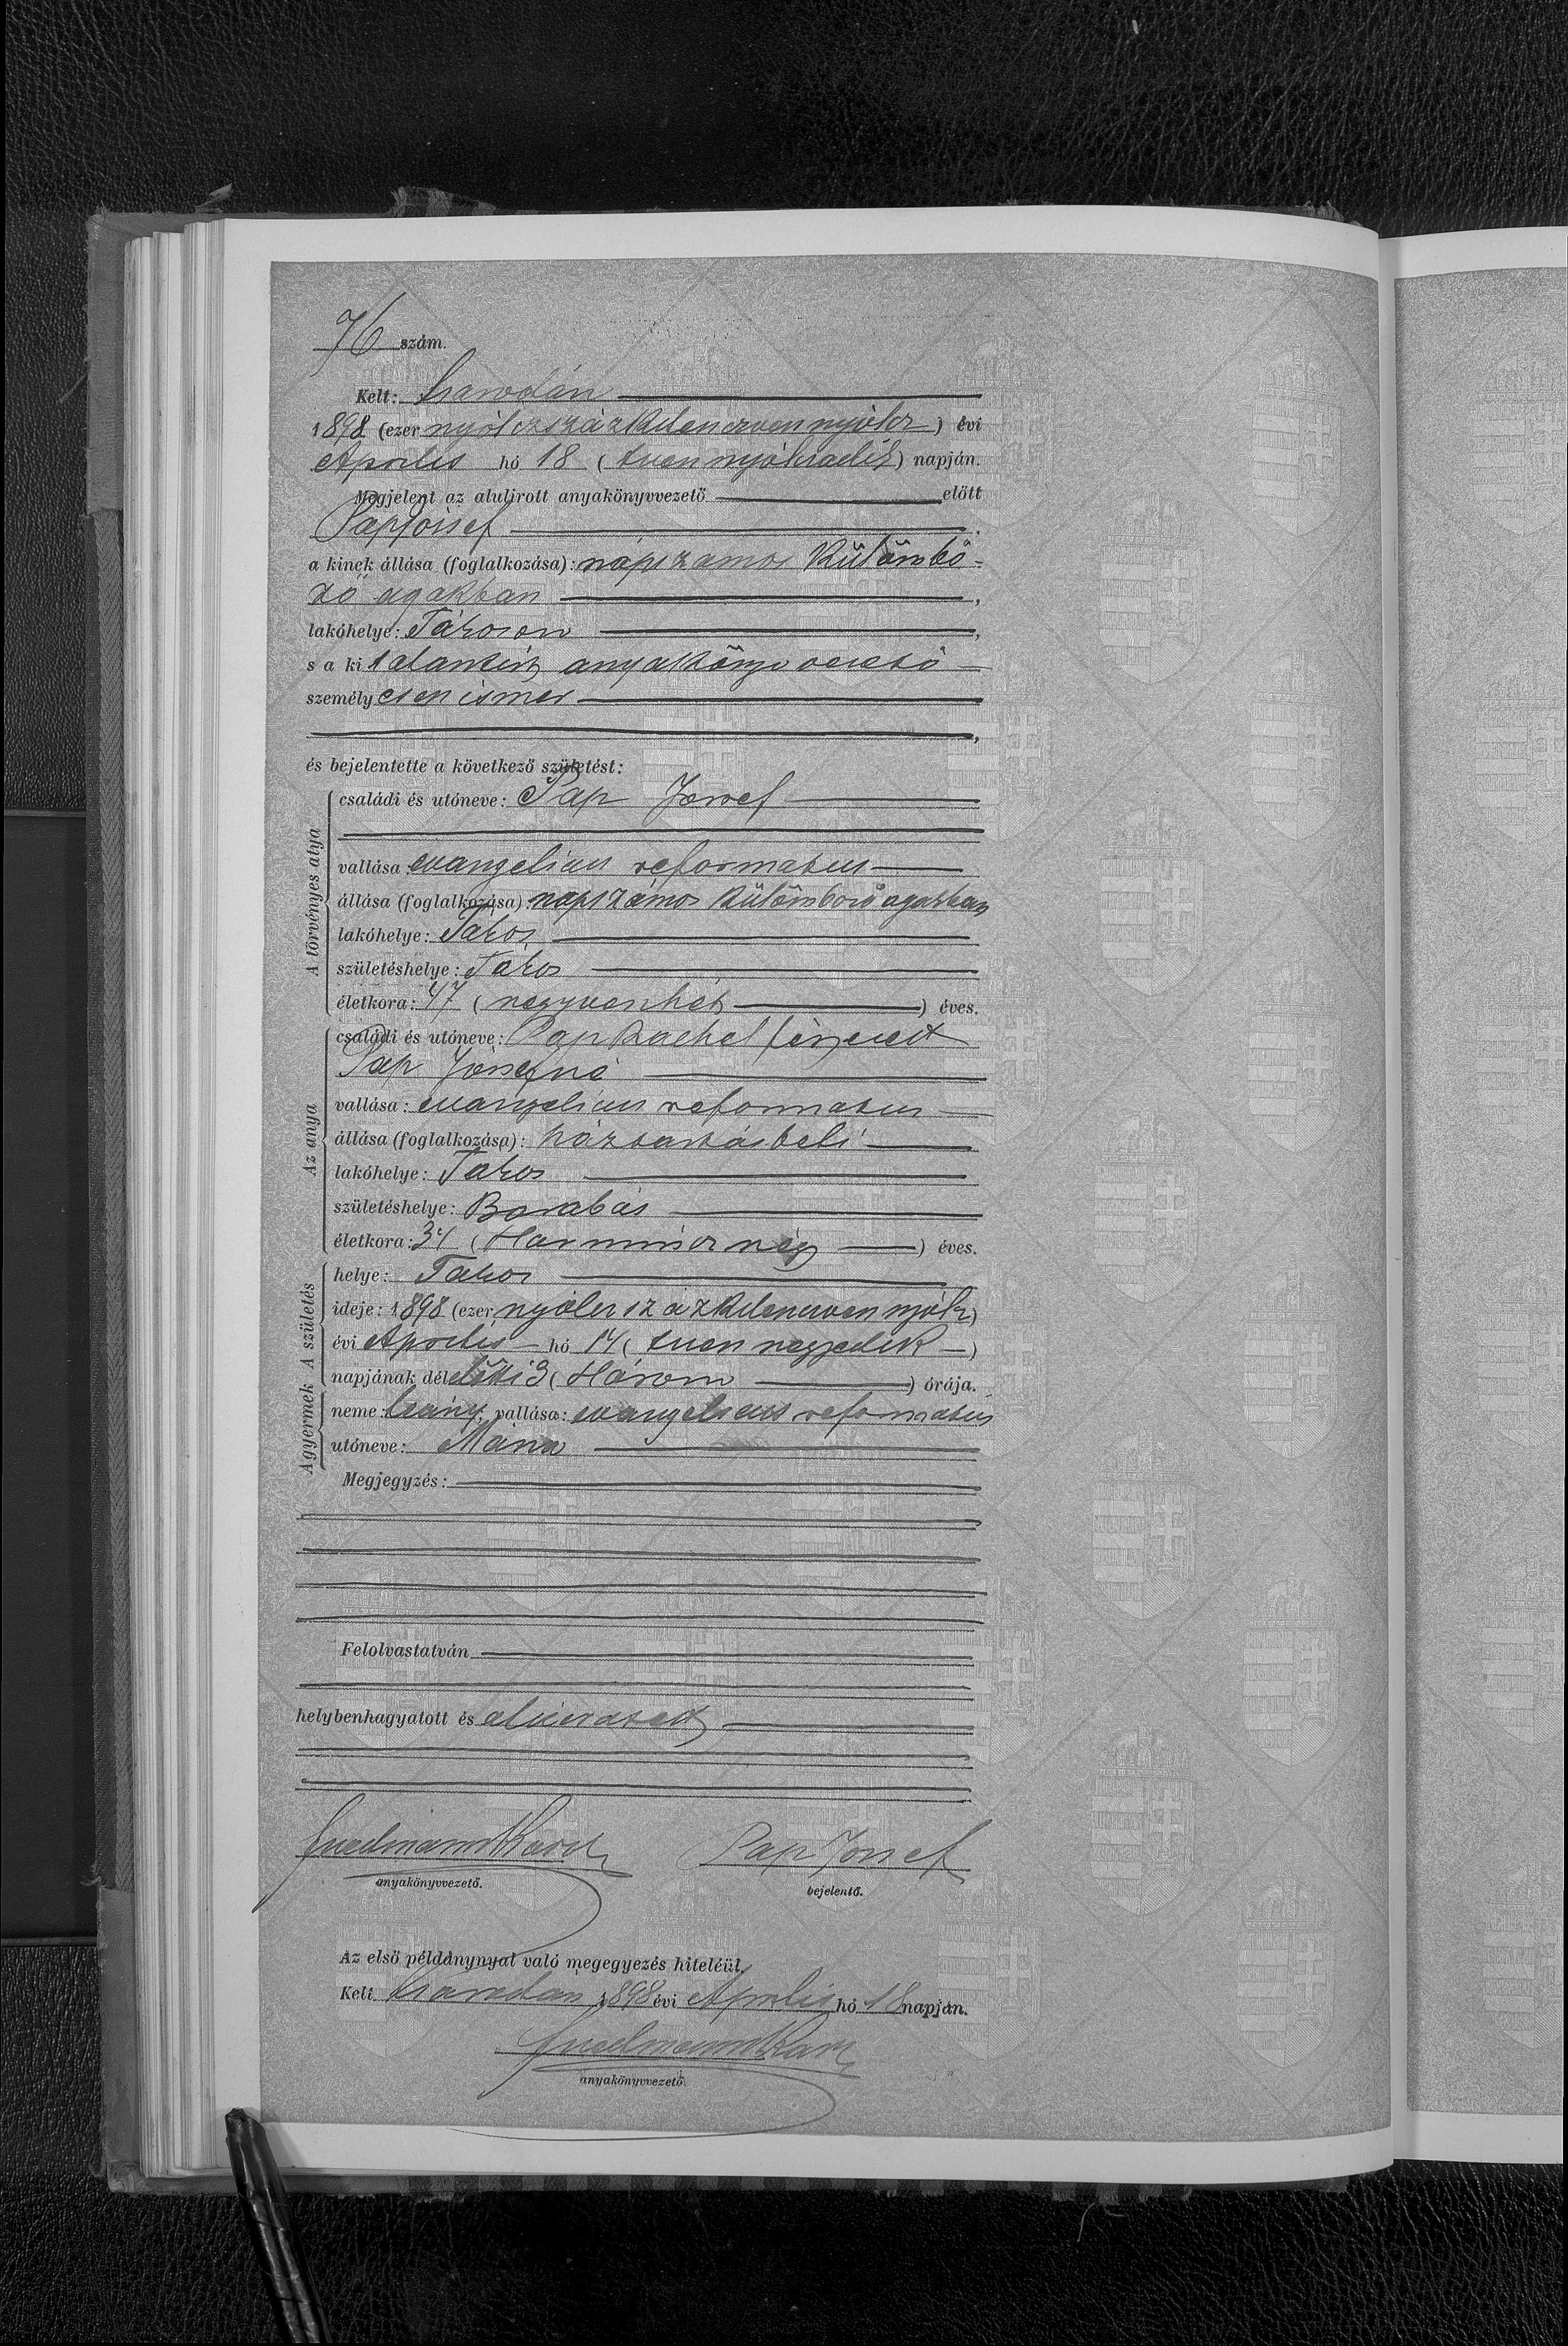 76 szám.
Kelt: Csarodán
1898 (ezer nyólczszázkilenczvennyólcz) évi
Aprilis hó 18 (tizennyólczadik) napján.
Megjelent az alulirott anyakönyvvezető előtt
Pap Jósef
a kinek állása (foglalkozása): napszamos külömbö-
ző agakban,
lakóhelye: Tákoson,
s a ki alantirt anyakönyvvezető
személyesen ismer
,
és bejelentette a következő születést:
A törvényes atya
családi és utóneve: Pap Jósef
vallása evangelicus reformatus
állása (foglalkozása): napszámos külömböző agakban
lakóhelye: Tákos
születéshelye: Tákos
életkora: 47 (negyvenhét) éves.
Az anya
családi és utóneve: Pap Rachel férjezett
Pap Jósefné
vallása: evangelicus reformatus
állása (foglalkozása): háztartásbeli
lakóhelye: Takos
születéshelye: Barabás
életkora: 34 (Harmincz négy) éves.
A születés
helye: Takos
ideje: 1898 (ezer nyólczszázkilenczven nyólcz)
évi Aprilis hó 14 (tizen negyedik)
napjának délelőtti 3 (Három) órája.
A gyermek
neme: leány, vallása: evangelicus reformatus
utóneve: Mária
Megjegyzés:
Felolvastatván
helybenhagyatott és aláiratott
Friedmann Karoly Pap Jósef
anyakönyvvezető. bejelentő.
Az első példánynyal való megegyezés hiteléül.
Kelt Csarodán 1898 évi Aprilis hó 18 napján.
Friedmann Karoly
anyakönyvvezető.